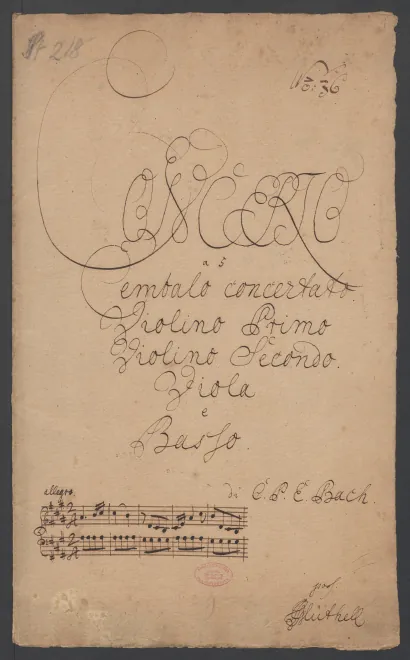 St 218
No: 36
CONCERTO
a 5
Cembalo concertato.
Violino Primo
Violino Secondo.
Viola
e
Basso.
di C. P. E. Bach.
allegro.
poss.